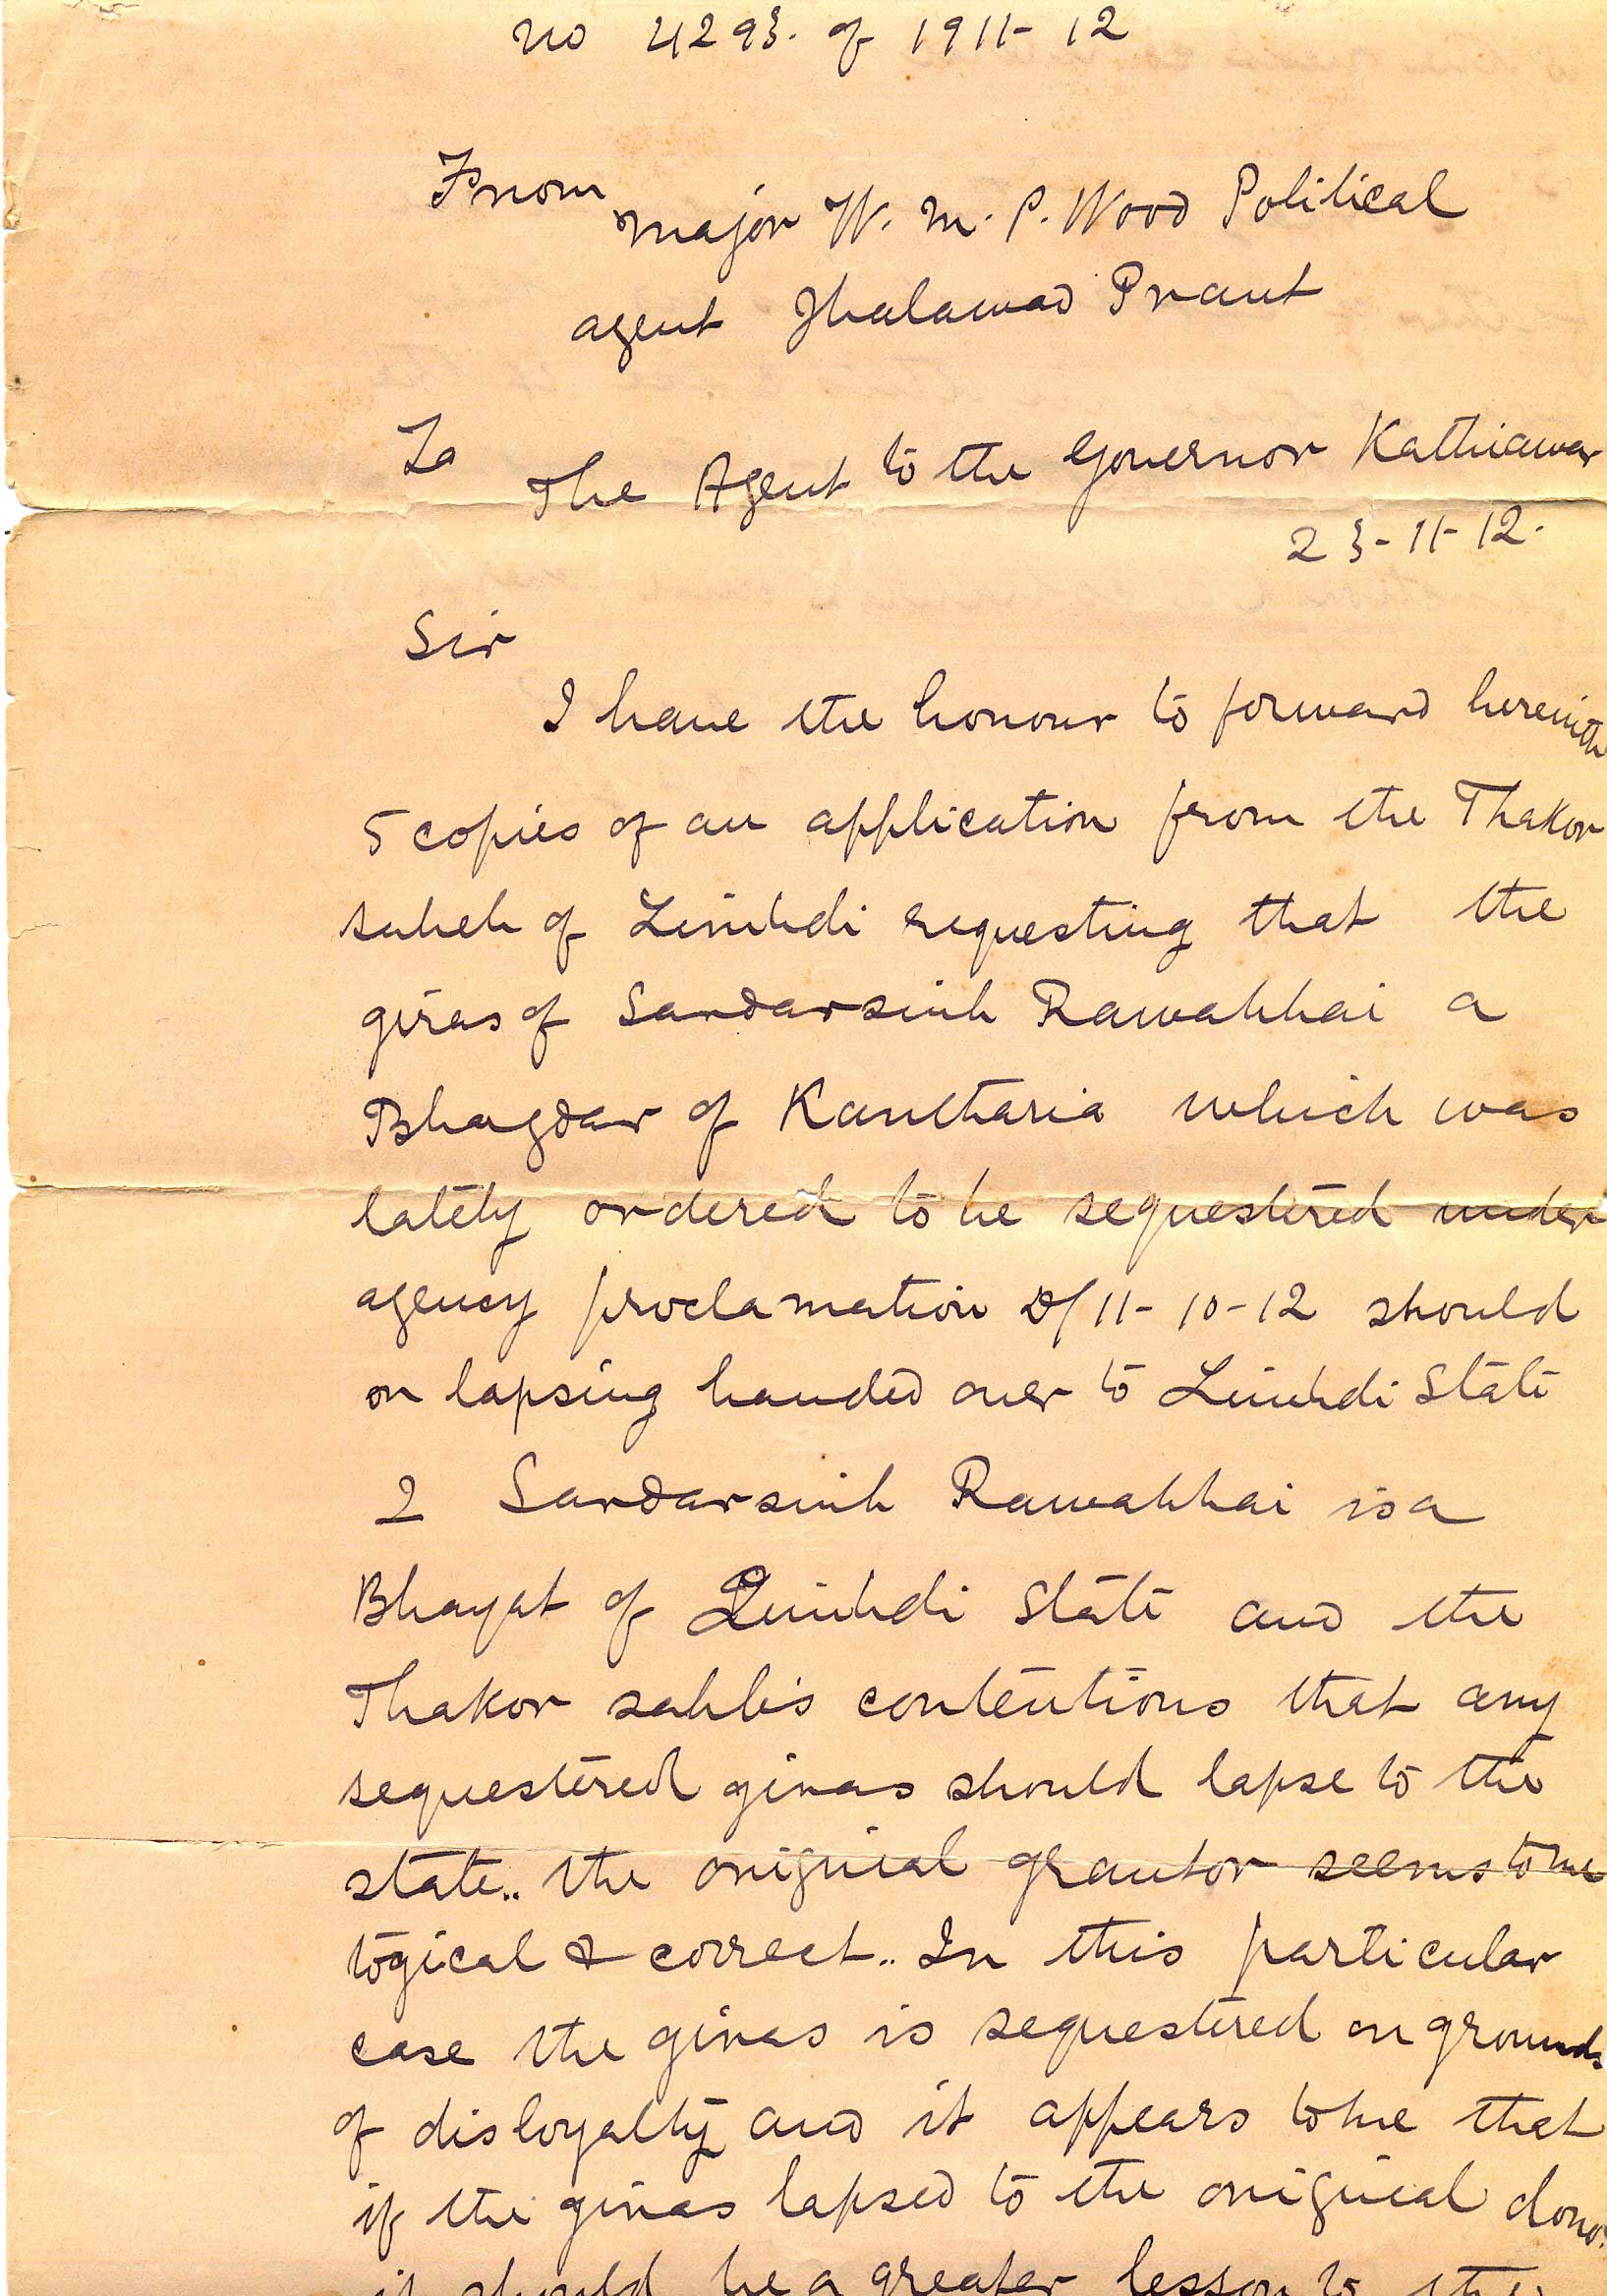 No 4293. of 1911-12
From
Major W. M. P. Wood Political
agent Jhalawad Prant
To
The Agent to the Governor Kathiawar
23-11-12.
Sir
I have the honour to forward herewith
5 copies of an application from the Thakor
saheb of Limbdi requesting that the
giras of Sardarsinh Rawabhai a
Bhagdar of Kantharia which was
lately ordered to be sequestered under
agency proclamation D/11-10-12 should
on lapsing handed over to Limbdi State
2 Sardarsinh Rawabhai is a
Bhayat of Limbdi State and the
Thakor sahb's contentions that any
sequestered giras should lapse to the
state.. the original grantor seems to me
logical & correct.. In this particular
case the giras is sequestered on grounds
of disloyalty and it appears to me that
if the giras lapsed to the original donor
it should be a greater lesson to the